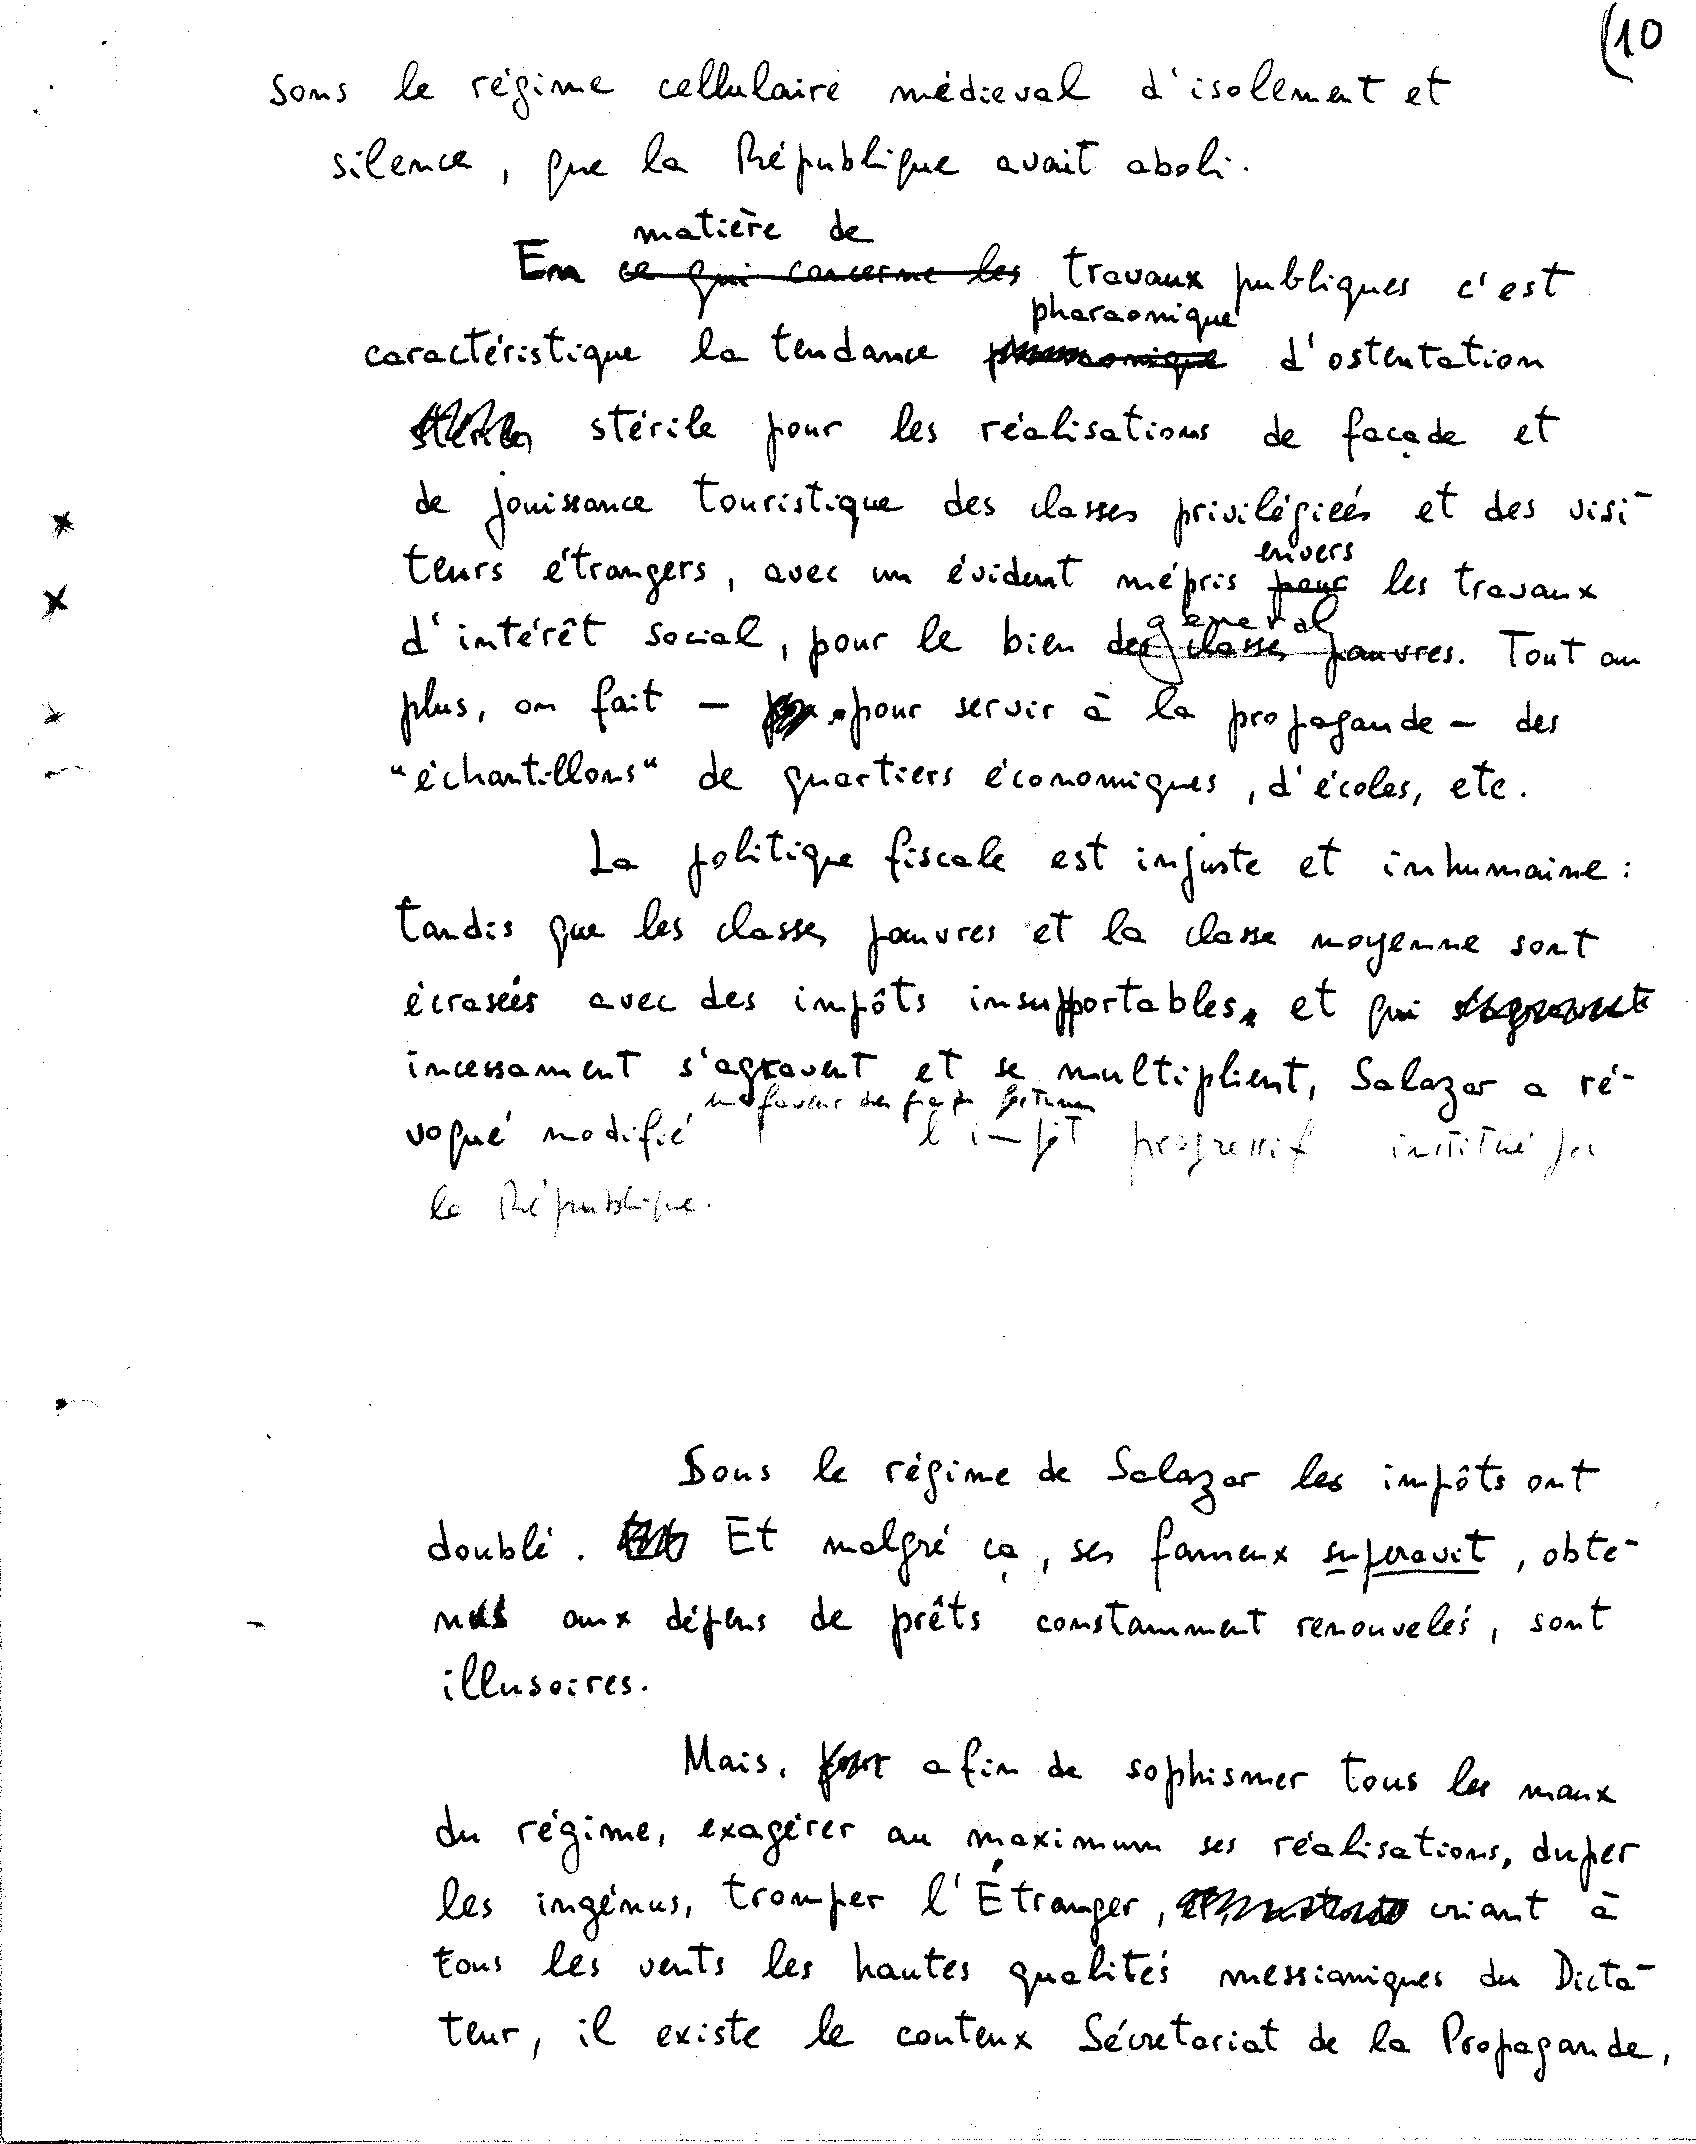 (10
sous le régime cellulaire médieval d'isolement et
silence, que la République avait aboli.
matière de
En ce qui concerne les travaux publiques c'est
pharaonique
caractéristique la tendance d'ostentation
stérile pour les réalisations de façade et
de jouissance touristique des classes privilégieés et des visi-
envers
teurs étrangers, avec un évident mépris pour les travaux
general
d'intérêt social, pour le bien des classes pauvres. Tout au
plus, on fait - pour servir à la propagande - des
"échantillons" de quartiers économiques, d'écoles, etc.
La politique fiscale est injuste et inhumaine :
tandis que les classes pauvres et la classe moyenne sont
écraseés avec des impôts insupportables, et qui
incessament s'agravent et se multiplient, Salazar a ré-
en faveur des
voqué modifié l'impôt progressif institué par
la République.
Sous le régime de Salazar les impôts ont
doublé. Et malgré ça, ses fameux superavit, obte-
nus aux dépens de prêts constamment renouvelés, sont
illusoires.
Mais, pour afin de sophismer tous les maux
du régime, exagérer au maximum ses réalisations, duper
les ingénus, tromper l'Étranger, criant à
tous les vents les hautes qualités messianiques du Dicta-
teur, il existe le conteux Sécretariat de la Propagande,